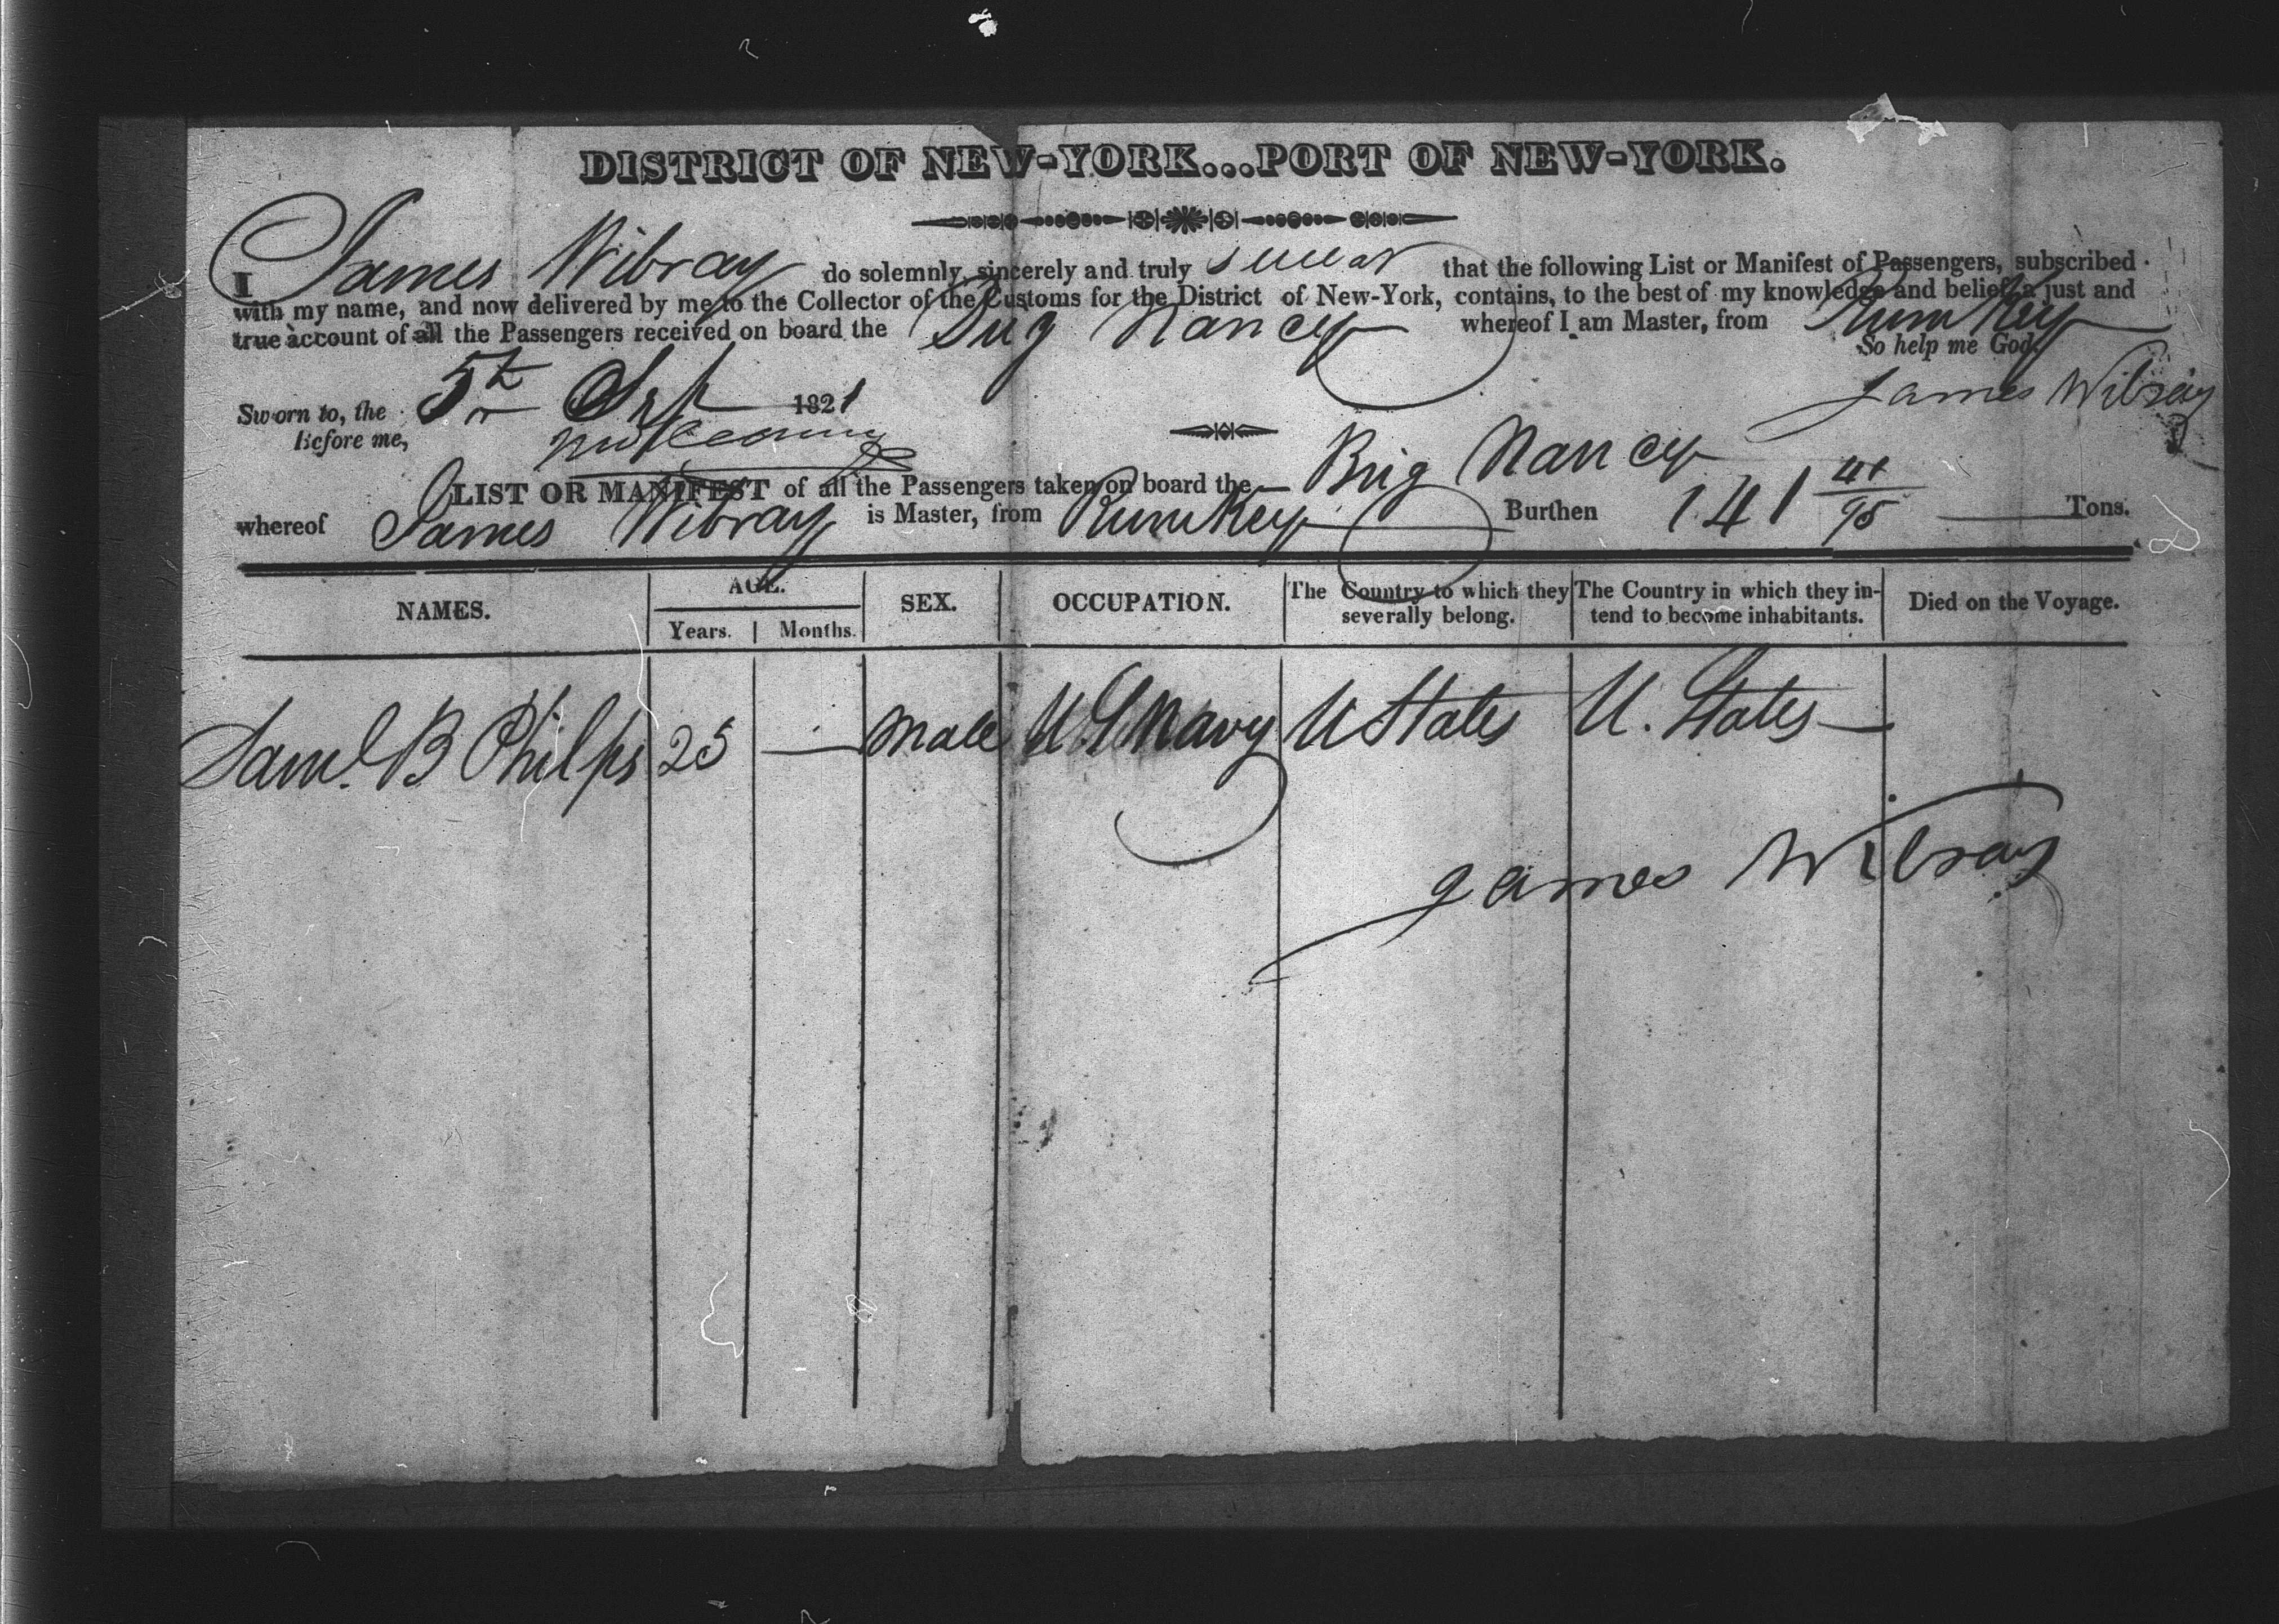 DISTRICT OF NEW-YORK...PORT OF NEW-YORK.
I James Wibray do solemnly, sincerely and truly swear that the following List or Manifest of Passengers, subscribed
with my name, and now delivered by me to the Collector of the Customs for the District of New-York, contains, to the best of my knowledge and belief, a just and
true account of all the Passengers received on board the Brig Nancy whereof I am Master, from Rum Key
So help me God.
James Wibray
Sworn to, the 5th Sep 1821
Before me,
LIST OR MANIFEST of all the Passengers taken on board the Brig Nancy
whereof James Wibray is Master, from Rum Key Burthen 141 41/95 Tons.
NAMES. AGE. SEX. OCCUPATION. The Country to which they severally belong. The Country in which they in-tend to become inhabitants. Died on the Voyage.
Years. Months.
Saml. B Philps 25 — male U S Navy U States U. States
James Wibray